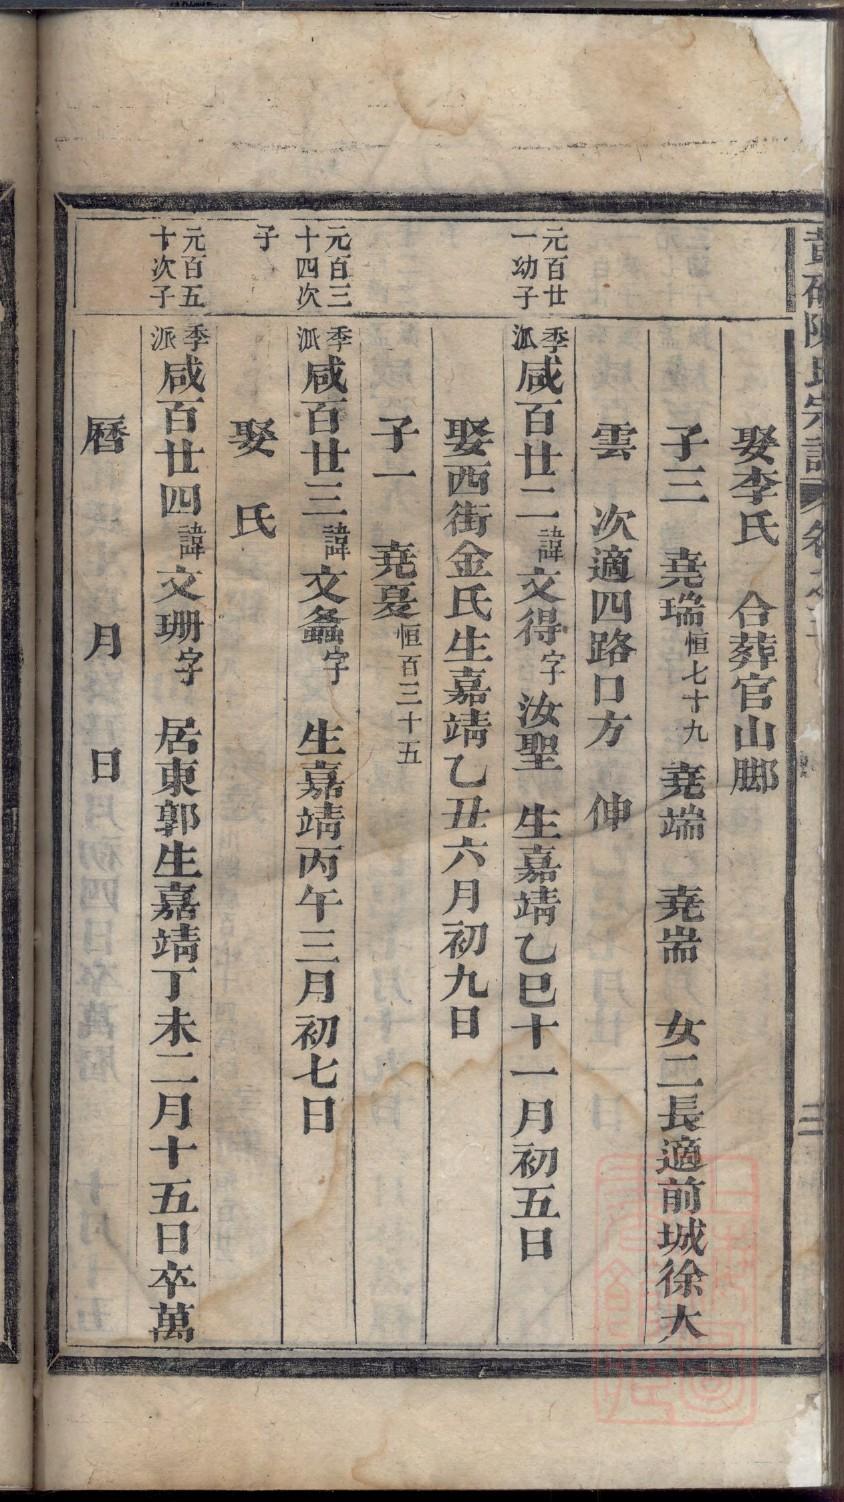 陳氏宗譜 卷之三
三
娶李氏 合葬官山脚
子三 堯瑞恒七十九 堯端 堯耑 女二長適前城徐大
雲 次適四路口方 伸
元百廿一幼子
季派咸百廿二諱文得字汝聖 生嘉靖乙巳十一月初五日
娶西街金氏生嘉靖乙丑六月初九日
子一 堯夏恒百三十五
元百三十四次子
季派咸百廿三諱文螽字 生嘉靖丙午三月初七日
娶 氏
元百五十次子
季派咸百廿四諱文珊字 居東郭生嘉靖丁未二月十五日卒萬
曆 月 日